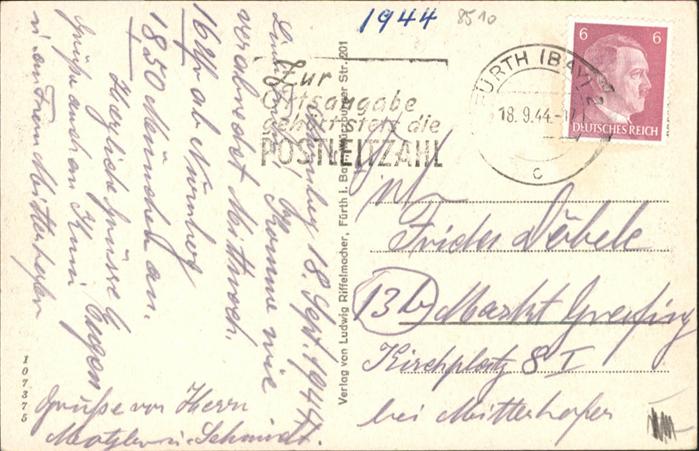 1944
8510
6 6
DEUTSCHES REICH
FÜRTH (BAY) 2
18.9.44
c
Zur
Ortsangabe
gehört stets die
POSTLEITZAHL
Nürnberg 18. Sept. 1944.
Komme wie
verabredet Mittwoch.
16 Uhr ab Nürnberg
1850 München an.
Herzliche Grüsse Eugen
Grüsse auch an
u. an Frau Mitterhofer
Grüsse von Herrn
Metzler u. Schmidt.
Verlag von Ludwig Riffelmacher, Fürth i. Bay., Würzburger Str. 201
107375
Frieda Döbele
13b Markt Grafing
Kirchplatz 8 I
bei Mitterhofer